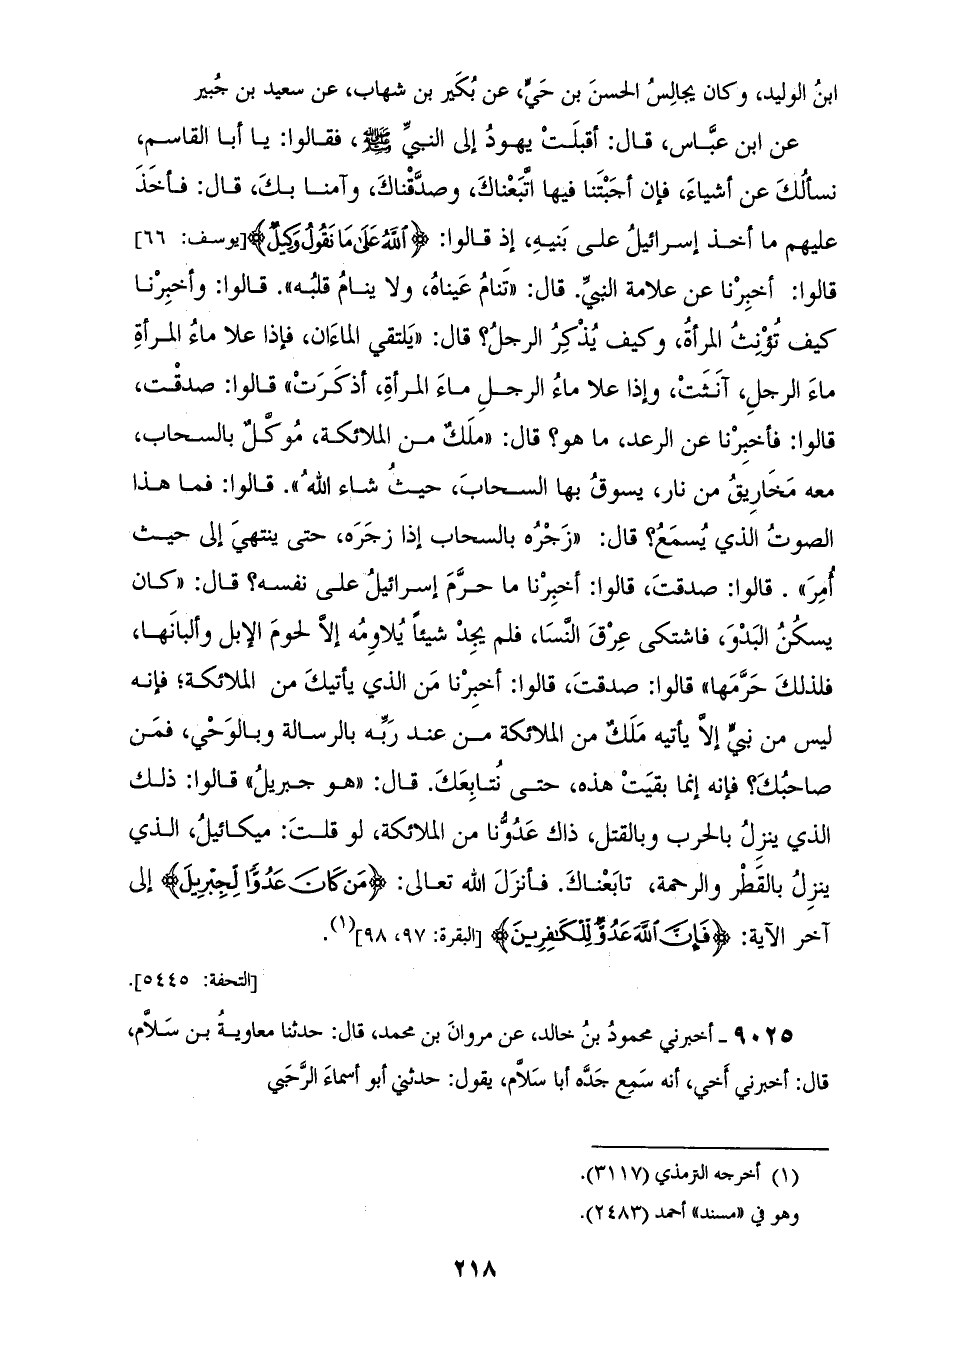 ابنُ الوليد، وكان يجالِسُ الحسنَ بن حَيٍّ، عن بُكَير بن شهاب، عن سعيد بن جُبير
عن ابن عبَّاس، قال: أقبلَتْ يهودُ إلى النبيِّ ﷺ، فقالوا: يا أبا القاسم،
نسألُكَ عن أشياءَ، فإن أجَبْتَنا فيها اتَّبَعْناكَ، وصدَّقْناكَ، وآمنا بكَ، قال: فأخَذَ
عليهم ما أخذ إسرائيلُ على بَنيهِ، إذ قالوا: ﴿ٱللَّهُ عَلَىٰ مَا نَقُولُ وَكِيلٌ﴾[يوسف: ٦٦]
قالوا: أخبِرْنا عن علامة النبيِّ. قال: «تَنامُ عَيناهُ، ولا ينامُ قلبُه». قالوا: وأخبِرْنا
كيف تُؤْنِثُ المرأةُ، وكيف يُذْكِرُ الرجلُ؟ قال: «يَلتقي الماءَان، فإذا علا ماءُ المرأةِ
ماءَ الرجلِ، آنَثَتْ، وإذا علا ماءُ الرجلِ ماءَ المرأةِ، أذكَرَتْ» قالوا: صدقْت،
قالوا: فأخبِرْنا عن الرعد، ما هو؟ قال: «ملَكٌ من الملائكة، مُوكَّلٌ بالسحاب،
معه مَخَاريقُ من نار، يسوقُ بها السحابَ، حيثُ شاء اللهُ». قالوا: فما هذا
الصوتُ الذي يُسمَعُ؟ قال: «زَجْرُه بالسحاب إذا زجَرَه، حتى ينتهيَ إلى حيث
أُمِرَ» . قالوا: صدقتَ، قالوا: أخبِرْنا ما حرَّمَ إسرائيلُ على نفسه؟ قال: «كان
يسكُنُ البَدْوَ، فاشتكى عِرْقَ النَّسَا، فلم يجِدْ شيئاً يُلاوِمُه إلاَّ لحومَ الإبل وألبانَها،
فلذلكَ حَرَّمَها» قالوا: صدقتَ، قالوا: أخبِرْنا مَن الذي يأتيكَ من الملائكة؛ فإنه
ليس من نبيٍّ إلاَّ يأتيه مَلَكٌ من الملائكة من عند رَبِّه بالرسالة وبالوَحْي، فمَن
صاحبُكَ؟ فإنه إنما بقيَتْ هذه، حتى نُتابِعَكَ. قال: «هو جبريلُ» قالوا: ذلك
الذي ينزِلُ بالحرب وبالقتل، ذاك عَدُوُّنا من الملائكة، لو قلتَ: ميكائيلُ، الذي
ينزِلُ بالقَطْر والرحمة، تابَعْناكَ. فأنزَلَ الله تعالى: ﴿مَن كَانَ عَدُوًّا لِّجِبْرِيلَ﴾ إلى
آخر الآية: ﴿فَإِنَّ ٱللَّهَ عَدُوٌّ لِّلْكَٰفِرِينَ﴾ [البقرة: ٩٧، ٩٨](١).
[التحفة: ٥٤٤٥].
٩٠٢٥ ـ أخبرني محمودُ بنُ خالد، عن مروانَ بن محمد، قال: حدثنا معاويةُ بن سَلاَّم،
قال: أخبرني أَخي، أنه سَمِع جَدَّه أبا سَلاَّم، يقول: حدثني أبو أسماءَ الرَّحَبي
(١) أخرجه الترمذي (٣١١٧).
وهو في «مسند» أحمد (٢٤٨٣).
٢١٨